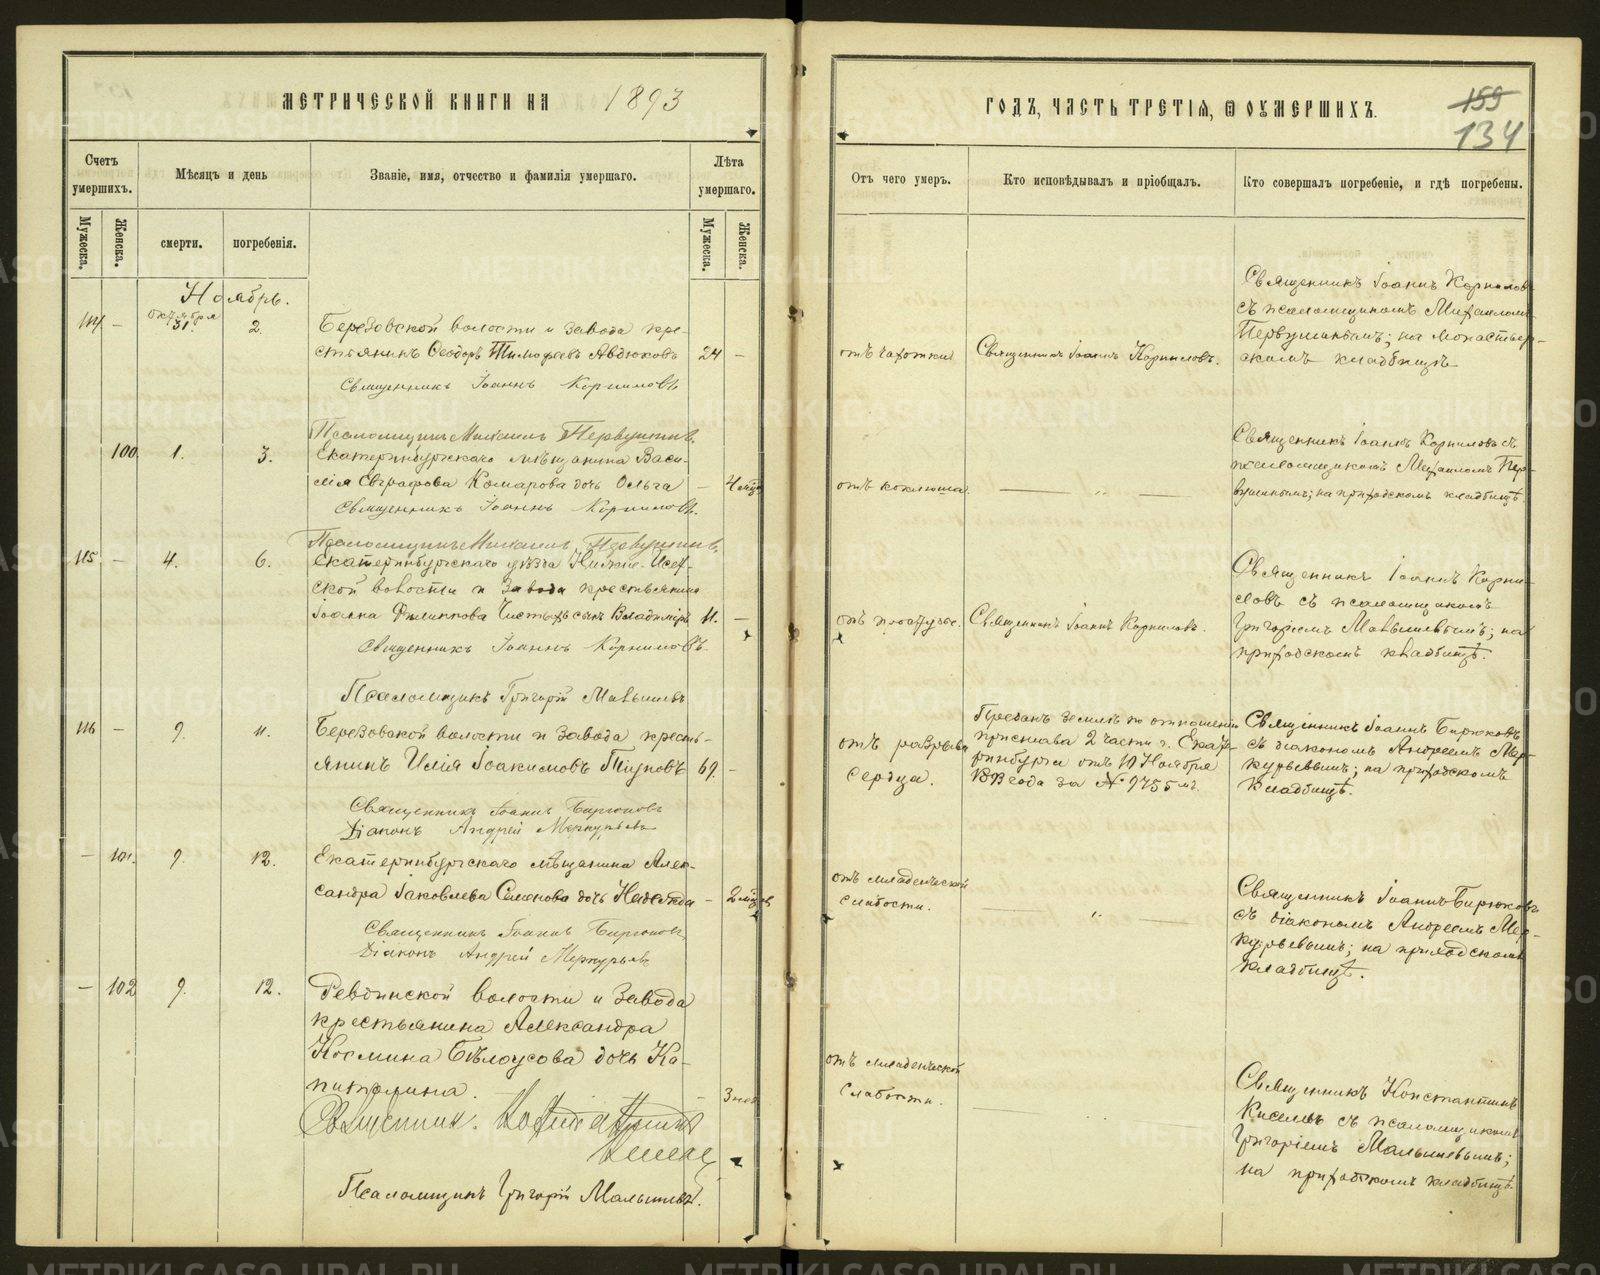 МЕТРИЧЕСКОЙ КНИГИ НА 1893
ГОДЪ, ЧАСТЬ ТРЕТІЯ, Ѿ ОУМЕРШИХЪ.
159
134
Счетъ умершихъ.
Мѣсяцъ и день
Званіе, имя, отчество и фамилія умершаго.
Лѣта умершаго.
Отъ чего умеръ.
Кто исповѣдывалъ и пріобщалъ.
Кто совершалъ погребеніе, и гдѣ погребены.
Мужеска.
Женска.
смерти.
погребенія.
Мужеска.
Женска.
Ноябрь.
114 –
октября
31.
2.
Березовской волости и завода кре-
стьянинъ Ѳеодоръ Тимоѳеевъ Авдюковъ
24 –
Священникъ Іоаннъ Корниловъ
Псаломщикъ Михаилъ Первушинъ
отъ чахотки
Священникъ Іоаннъ Корниловъ.
Священникъ Іоаннъ Корниловъ
съ псаломщикомъ Михаиломъ
Первушинымъ; на монастыр-
скомъ кладбищѣ
100.
1.
3.
Екатеринбургскаго мѣщанина Васи-
лія Евграфова Комарова дочь Ольга
– 4 мѣс
Священникъ Іоаннъ Корниловъ.
Псаломщикъ Михаилъ Первушинъ.
отъ коклюша.
— „ —
Священникъ Іоаннъ Корниловъ съ
псаломщикомъ Михаиломъ Пер-
вушинымъ; на приходскомъ кладбищѣ
115. –
4.
6.
Екатеринбургскаго уѣзда Нижне-Исет-
ской волости и завода крестьянина
Іоанна Филиппова сынъ Владиміръ
11. –
Священникъ Іоаннъ Корниловъ.
Псаломщикъ Григорій Малышевъ
отъ
Священникъ Іоаннъ Корниловъ.
Священникъ Іоаннъ Корни-
ловъ съ псаломщикомъ
Григоріемъ Малышевымъ; на
приходскомъ кладбищѣ.
116 –
9.
11.
Березовской волости и завода кресть-
янинъ Илія Іоакимовъ
69. –
Священникъ Іоаннъ Бирюковъ
Діаконъ Андрей Меркурьевъ
отъ разрыва
сердца.
Преданъ землѣ по отношенію
пристава 2 части г. Екате-
ринбурга отъ 10 Ноября
1893 года за № 9755 мъ.
Священникъ Іоаннъ Бирюковъ
съ діакономъ Андреемъ Мер-
курьевымъ; на приходскомъ
кладбищѣ.
– 101.
9.
12.
Екатеринбургскаго мѣщанина Алек-
сандра Іаковлева Семенова дочь Надежда
– 2 мѣсяц
Священникъ Іоаннъ Бирюковъ
Діаконъ Андрей Меркурьевъ
отъ младенческой
слабости.
— „ —
Священникъ Іоаннъ Бирюковъ
съ діакономъ Андреемъ Мер-
курьевымъ; на приходскомъ
кладбищѣ.
– 102
9.
12.
Ревдинской волости и завода
крестьянина Александра
Космина Бѣлоусова дочь Ка-
питолина.
– 3 нед
Священник. Константин
Псаломщикъ Григорій Малышевъ.
отъ младенческой
слабости.
Священникъ Константинъ
Киселевъ съ псаломщикомъ
Григоріемъ Малышевымъ;
на приходскомъ кладбищѣ.
METRIKI.GASO-URAL.RU